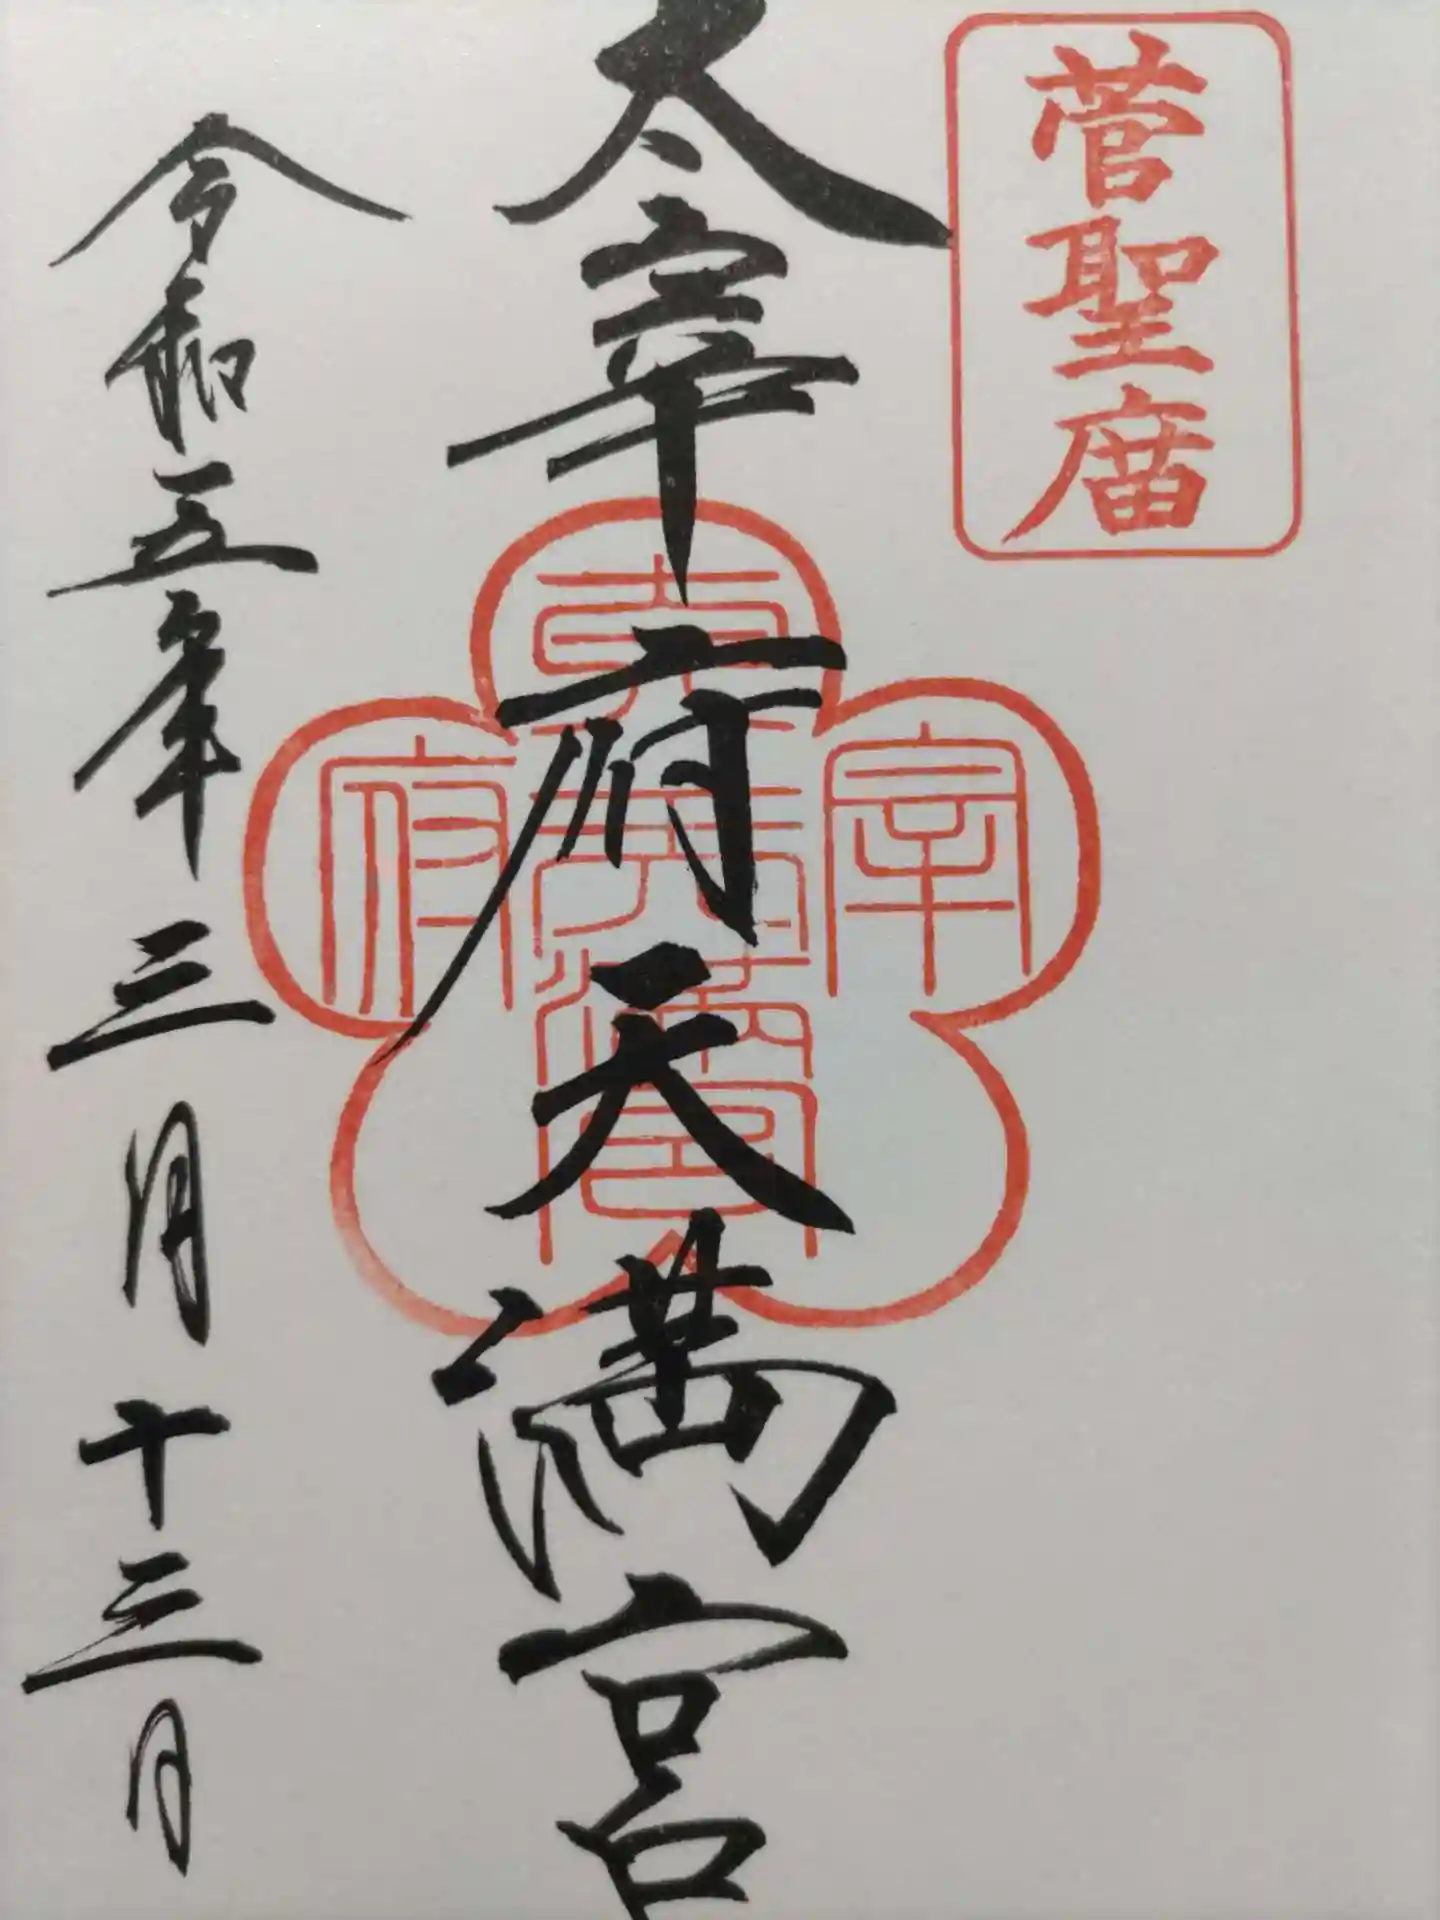 菅聖庿
太宰府天満宮
太宰府天満宮
令和五年三月十三日